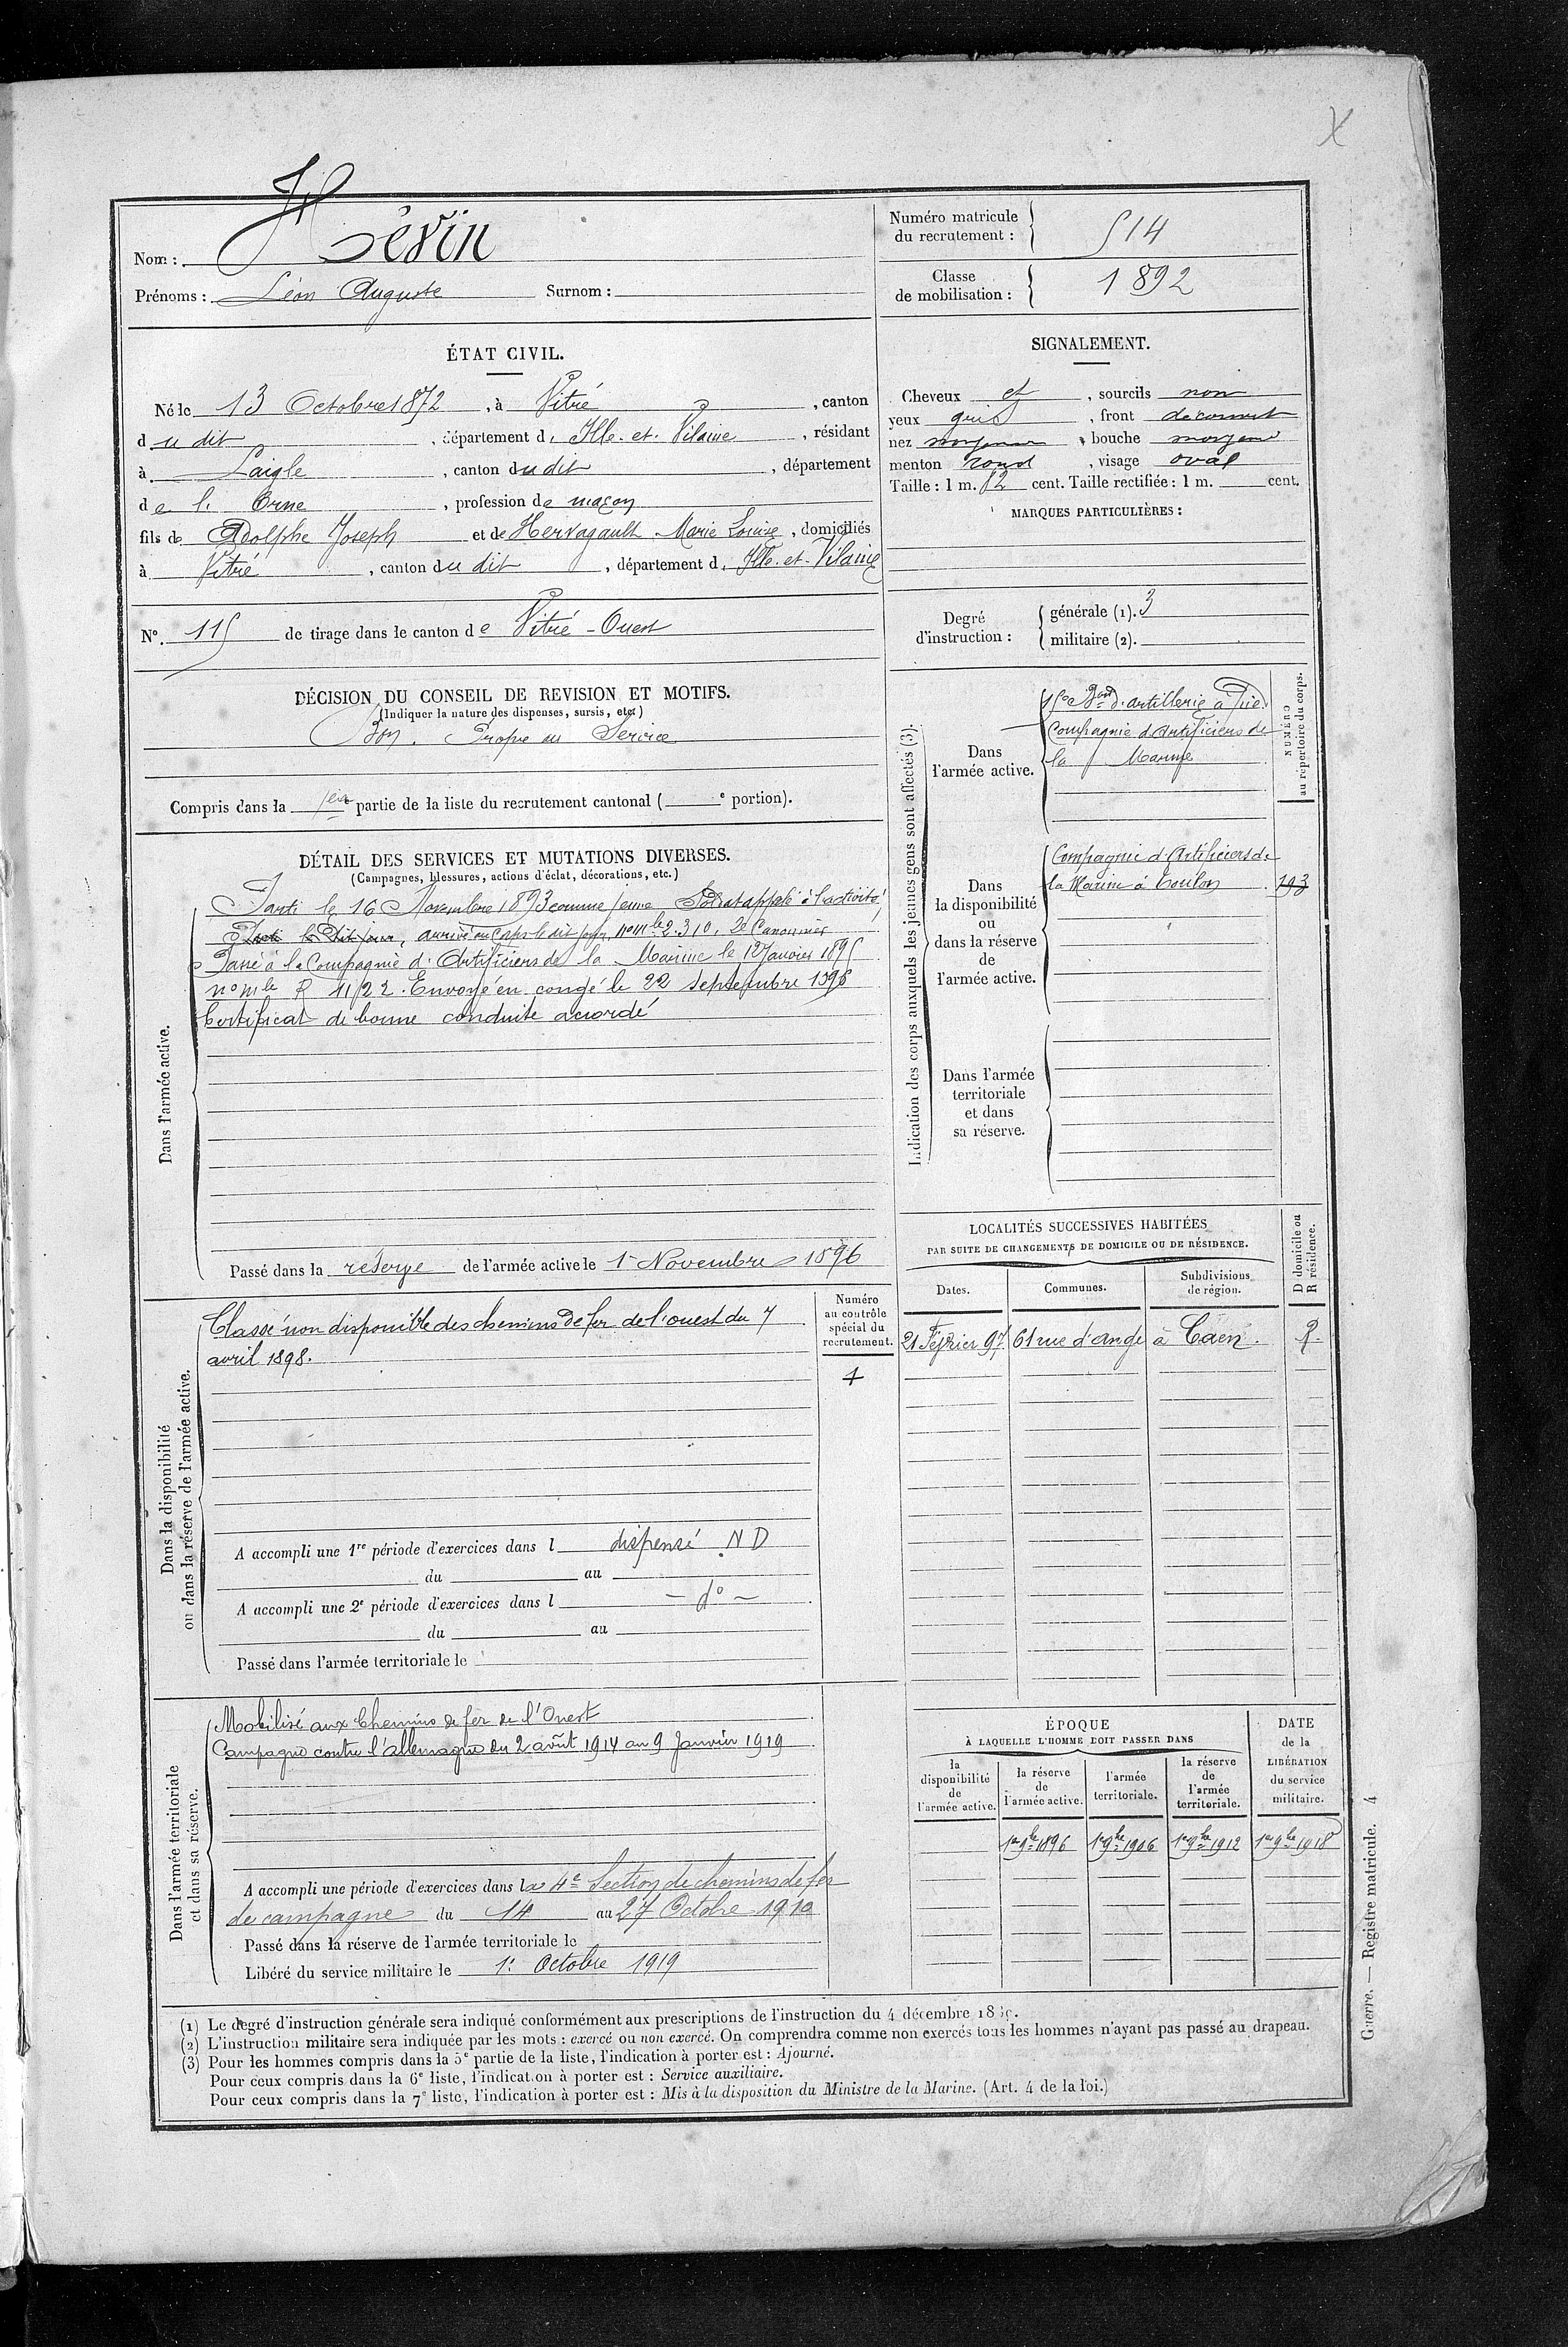 X
Nom : Hévin
Prénoms : Léon Auguste Surnom :
Numéro matricule du recrutement : 514
Classe de mobilisation : 1892
ÉTAT CIVIL.
Né le 13 Octobre 1872, à Vitré, canton
du dit, département d'Ille-et-Vilaine, résidant
à Laigle, canton du dit, département
de l'Orne, profession de maçon
fils de Adolphe Joseph et de Hervagault Marie Louise, domiciliés
à Vitré, canton du dit, département d'Ille-et-Vilaine
N° 115 de tirage dans le canton de Vitré-Ouest
SIGNALEMENT.
Cheveux et, sourcils noir
yeux gris, front découvert
nez moyen, bouche moyenne
menton rond, visage oval
Taille : 1 m. cent. Taille rectifiée : 1 m. cent.
MARQUES PARTICULIÈRES :
Degré d'instruction :
générale (1). 3
militaire (2).
DÉCISION DU CONSEIL DE REVISION ET MOTIFS.
(Indiquer la nature des dispenses, sursis, etc.)
Bon. Propre au Service
Compris dans la 1ère partie de la liste du recrutement cantonal ( e portion).
DÉTAIL DES SERVICES ET MUTATIONS DIVERSES.
(Campagnes, blessures, actions d'éclat, décorations, etc.)
Dans l'armée active.
Parti le 16 Novembre 1893 comme jeune Soldat appelé à l'activité,
le Dit jour, arrivé au Corps le dit jour, n° mle 2.310, 2e Canonnier
Passé à la Compagnie d'Artificiers de la Marine le 1 Janvier 1895
n° mle 1122. Envoyé en congé le 22 septembre 1896
Certificat de bonne conduite accordé
Passé dans la réserve de l'armée active le 1er Novembre 1896
Indication des corps auxquels les jeunes gens sont affectés (3).
NUMÉRO au répertoire du corps.
Dans l'armée active.
15e Bon d'artillerie à Pied
Compagnie d'Artificiers de
la Marine
Dans la disponibilité ou dans la réserve de l'armée active.
Compagnie d'Artificiers de
la Marine à Toulon 193
Dans l'armée territoriale et dans sa réserve.
LOCALITÉS SUCCESSIVES HABITÉES
PAR SUITE DE CHANGEMENTS DE DOMICILE OU DE RÉSIDENCE.
Dates. Communes. Subdivisions de région. D domicile ou R résidence.
21 Février 97 61 rue d'Auge à Caen. R.
Dans la disponibilité ou dans la réserve de l'armée active.
Numéro au contrôle spécial du recrutement.
Classé non disponible des chemins de fer de l'ouest du 7
avril 1898.
A accompli une 1re période d'exercices dans l dispensé ND
du au
A accompli une 2e période d'exercices dans l - d° -
du au
Passé dans l'armée territoriale le
Dans l'armée territoriale et dans sa réserve.
Mobilisé aux Chemins de fer de l'Ouest
Campagne contre l'allemagne du 2 août 1914 au 9 Janvier 1919
A accompli une période d'exercices dans la 4e Section de chemins de fer
de campagne du 14 au 27 Octobre 1910
Passé dans la réserve de l'armée territoriale le
Libéré du service militaire le 1er Octobre 1919
ÉPOQUE
À LAQUELLE L'HOMME DOIT PASSER DANS
la disponibilité de l'armée active. la réserve de l'armée active. l'armée territoriale. la réserve de l'armée territoriale.
DATE de la LIBÉRATION du service militaire.
1er 9bre 1896 1er 9bre 1906 1er 9bre 1912 1er 9bre 1918
(1) Le degré d'instruction générale sera indiqué conformément aux prescriptions de l'instruction du 4 décembre
(2) L'instruction militaire sera indiquée par les mots : exercé ou non exercé. On comprendra comme non exercés tous les hommes n'ayant pas passé au drapeau.
(3) Pour les hommes compris dans la 5e partie de la liste, l'indication à porter est : Ajourné.
Pour ceux compris dans la 6e liste, l'indication à porter est : Service auxiliaire.
Pour ceux compris dans la 7e liste, l'indication à porter est : Mis à la disposition du Ministre de la Marine. (Art. 4 de la loi.)
Guerre. — Registre matricule. 4